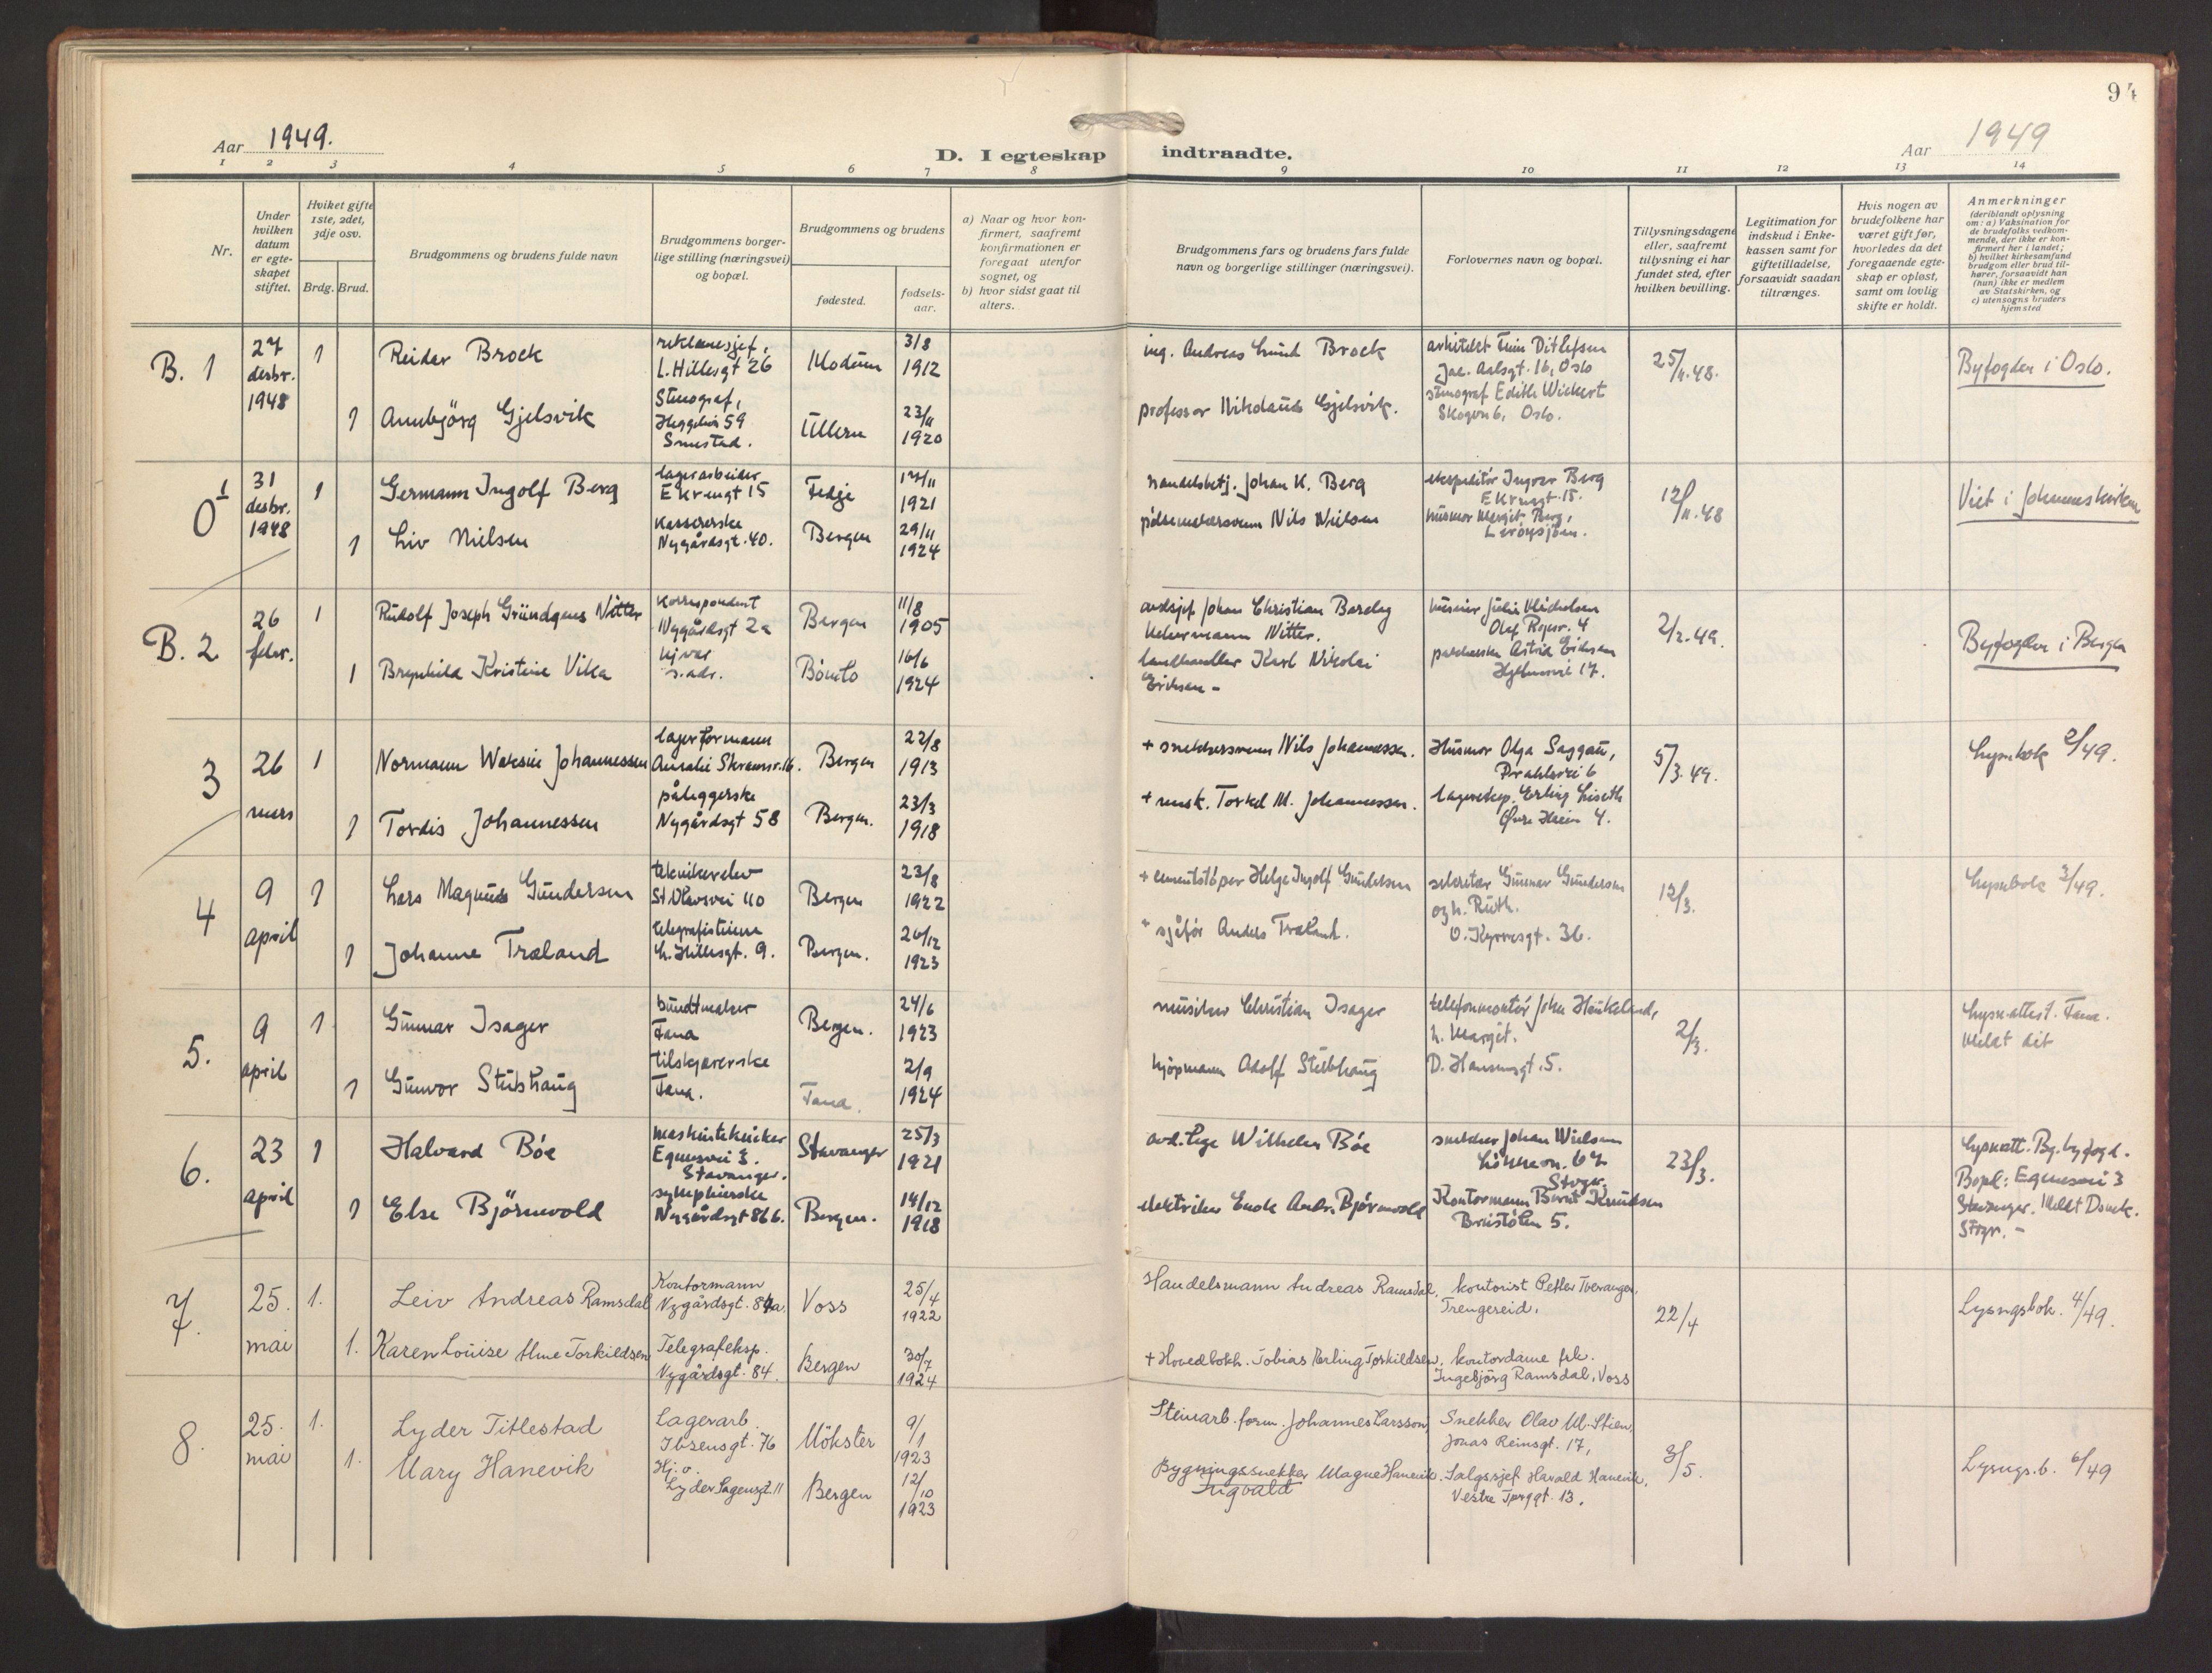 94
Aar 1949.
D. I egteskap indtraadte.
Aar 1949
1 2 3 4 5 6 7 8 9 10 11 12 13 14
Nr.
Under hvilken datum er egte-skapet stiftet.
Hviket gifte 1ste, 2det, 3dje osv.
Brdg. Brud.
Brudgommens og brudens fulde navn
Brudgommens borger-lige stilling (næringsvei) og bopæl.
Brudgommens og brudens
fødested.
fødsels-aar.
a) Naar og hvor kon-firmert, saafremt konfirmationen er foregaat utenfor sognet, og
b) hvor sidst gaat til alters.
Brudgommens fars og brudens fars fulde navn og borgerlige stillinger (næringsvei).
Forlovernes navn og bopæl.
Tillysningsdagene eller, saafremt tillysning ei har fundet sted, efter hvilken bevilling.
Legitimation for indskud i Enke-kassen samt for giftetilladelse, forsaavidt saadan tiltrænges.
Hvis nogen av brudefolkene har været gift før, hvorledes da det foregaaende egte-skap er opløst, samt om lovlig skifte er holdt.
Anmerkninger
(deriblandt oplysning om: a) Vaksination for de brudefolks vedkom-mende, der ikke er kon-firmert her i landet; b) hvilket kirkesamfund brudgom eller brud til-hører, forsaavidt han (hun) ikke er medlem av Statskirken, og c) utensogns bruders hjemsted
B. 1
27 desbr. 1948
1
Reidar Brock
reklamesjef,
L. Hillesgt 26
Modum
3/8 1912
ing. Andreas Lund Brock
arkitekt Finn Ditlefsen
Jac. Aalsgt. 16, Oslo
25/11.48.
Byfogden i Oslo.
1
Annbjörg Gjelsvik
Stenograf,
59
Smestad.
Ullern
23/11 1920
professor Nikolaus Gjelsvik.
stenograf Edith Wickert
Skogen 6, Oslo.
O 1
31 desbr. 1948
1
Germann Ingolf Berg
lagerarbeider
Ekrengt 15
Fedje
17/11 1921
handelsbetj. Johan K. Berg
ekspeditör Ingvar Berg
Ekrengt. 15.
12/11.48
Viet i Johanneskirken
1
Liv Nielsen
Kassererske
Nygårdsgt. 40.
Bergen
29/11 1924
pölsemakersvenn Nils Nielsen
husmor Margit Berg,
B. 2
26 febr.
1
Rudolf Joseph Gründgens Nitter
Korrespondent
Nygårdsgt 2a
Bergen
11/8 1905
avdsjef Johan Christian Barclay
Kehrmann Nitter.
husmor Julie Michelsen
Olaf Ryesv. 4
2/2.49.
Byfogden i Bergen
1
Brynhild Kristine Vika
hj.vær
s. adr.
Bömlo
16/6 1924
landhandler Karl Nikolai
Eriksen –
Astrid Eriksen
17.
3
26 mars
1
Normann Waksin Johannessen
lagerformann
Amalie Skramsv. 16.
Bergen
22/8 1913
+ snekkersvenn Nils Johannessen.
Husmor Olga Saggau,
6
5/3.49.
Lysnbok 2/49.
1
Tordis Johannessen
påleggerske
Nygårdsgt 58
Bergen.
23/3 1918
+ mask. Torkel M. Johannessen.
lagereksp. Erling Liseth
4.
4
9 april
1
Lars Magnus Gundersen
teknikerelev
St Olavsvei 110
Bergen
23/8 1922
+ cementstöper Helge Ingolf Gundersen
sekretær Gunnar Gundersen
og h. Ruth.
O. Kyrresgt. 36.
12/3.
Lysnbok 3/49.
1
Johanne Træland
telegrafistinne
L. Hillesgt. 9.
Bergen.
26/12 1923
" sjåför Anders Træland.
5.
9 april
1
Gunnar Isager
buntmaker
Fana
Bergen.
24/6 1923
musiker Christian Isager
telefonmontör John Haukeland,
h. Margit.
D. Hansensgt. 5.
2/3.
Lysn.attest. Fana.
Meldt dit
1
Gunvor Stubhaug
tilskjærerske
Fana.
Fana.
2/9 1924
kjöpmann Adolf Stubhaug
6.
23 april
1
Halvard Böe
maskintekniker
Egnesvei 3.
Stavanger.
Stavanger
25/3 1921
avd. lege Wilhelm Böe
snekker Johan Nielsen
67
Stvgr.
23/3.
Lysnatt. Bg. byfogd.
Bopl: Egnesvei 3
Stavanger. Meldt Domk.
Stvgr. –
1
Else Björnevold
sykepleierske
Nygårdsgt 86 b.
Bergen.
14/12 1918
elektriker Enok Andr. Björnevold
Kontormann Bernt Knudsen
5.
7.
25. mai
1.
Leiv Andreas Ramsdal
Kontormann
Nygårdsgt. 84a.
Voss
25/4 1922
Handelsmann Andreas Ramsdal,
kontorist Petter Tveranger,
Trengereid,
22/4
Lysngsbok. 4/49.
1.
Karen Louise Alme Torkildsen
Telegrafeksp.
Nygårdsgt. 84.
Bergen
30/7 1924
+ Hovedbokh. Tobias Herling Torkildsen,
kontordame frk.
Ingebjörg Ramsdal, Voss
8.
25. mai
1.
Lyder Titlestad
Lagerarb.
Ibsensgt. 76
Mökster
9/1 1923
Steinarb. form. Johannes Larsson
Snekker Olav M. Stien,
Jonas Reinsgt. 17,
3/5.
Lysngs.b. 6/49
1.
Mary Hanevik
Hj. v.
Lyder Sagensgt. 11
Bergen
12/10 1923
Bygningssnekker Magne Hanevik.
Ingvald
Salgssjef Harald Hanevik,
Vestre Torggt. 13.